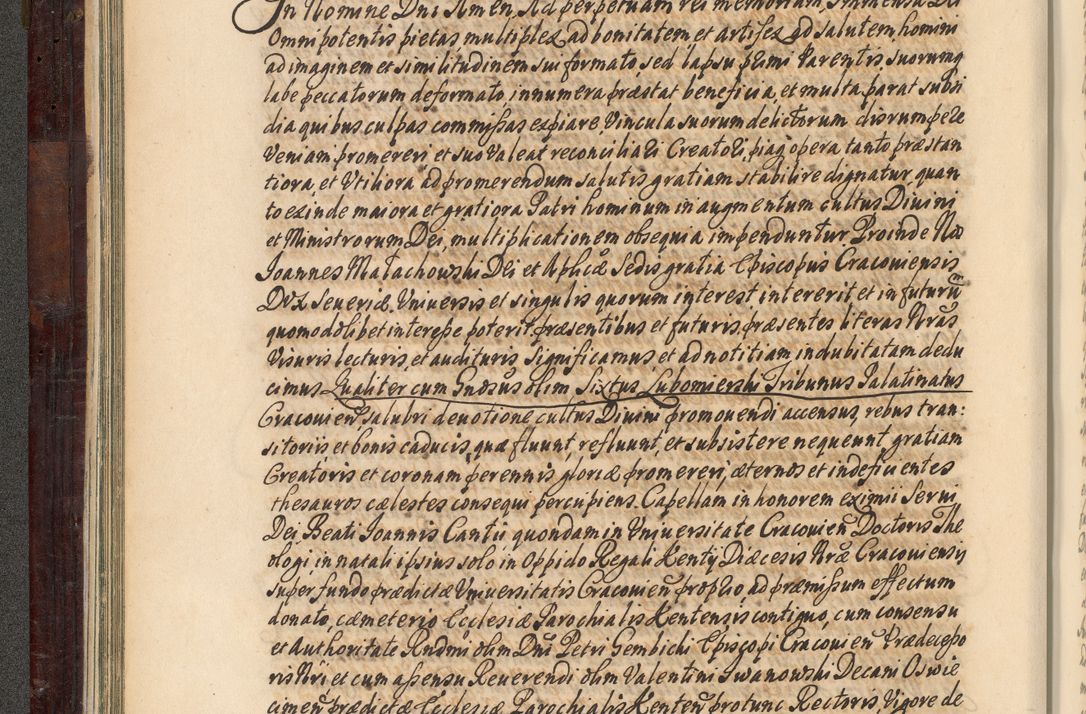 In Nomine Dni Amen, Ad perpetuam rei memoriam, Immensa Dei
Omnipotentis pietas, multiplex ad bonitatem et artifex ad salutem, homini
ad imaginem et similitudinem sui formato, sed lapsu primi Parentis suorumq
labe peccatorum deformato, innumera præstat beneficia, et multa parat subsi
dia quibus culpas commissas expiare, Vincula suorum delictorum disrumpere
Veniam promereri et suo Valeat reconciliari Creatori, piaq opera tanto præstan
tiora, et Vtiliora ad promerendum salutis gratiam stabilire dignatur quan
to exinde maiora et gratiora Patri hominum in augmentum cultus Divini
et Ministrorum Dei, multiplicationem obsequia impenduntur Proinde Nos
Joannes Małachowski Dei et Aplicæ Sedis gratia Episcopus Cracoviensis
Dux Severiæ. Vniversis et singulis quorum interest intererit, et in futurũ
quomodolibet interesse poterit præsentibus et futuris, præsentes literas Nras
Visuris lecturis, et audituris Significamus, et ad notitiam indubitatam dedu
cimus. Qualiter cum Gnosus olim Sixtus Lubomierski Tribunus Palatinatus
Cracovien̄, salubri devotione cultus Divini promovendi accensus, rebus tran:
sitoriis et bonis caducis, quæ fluunt, refluunt, et subsistere nequeunt gratiam
Creatoris et coronam perennis gloriæ promereri, æternos et indeficientes
thesauros cælestes consequi percupiens. Capellam in honorem eximii Servi
Dei, Beati Joannis Cantii quondam in Vniversitate Cracovien̄ Doctoris The
ologi, in natali ipsius solo in Oppido Regali Kenty, Diæcesis Nræ Cracoviensis
super fundo prædictæ Vniversitatis Cracovien̄ proprio ad præmissum effectum
donato, cæmeterio Ecclesiæ Parochialis Kentensis contiguo, cum consensu
et Authoritate Rndmi olim Dni Petri Gembicki Episcopi Cracovien̄ Prædecesso
ris Nri et cum assensu Reverendi olim Valentini Iwanowski Decani Oswie
cimen̄ prædictæ Ecclesiæ Parochialis Kenten̄ protunc Rectoris, Vigore de